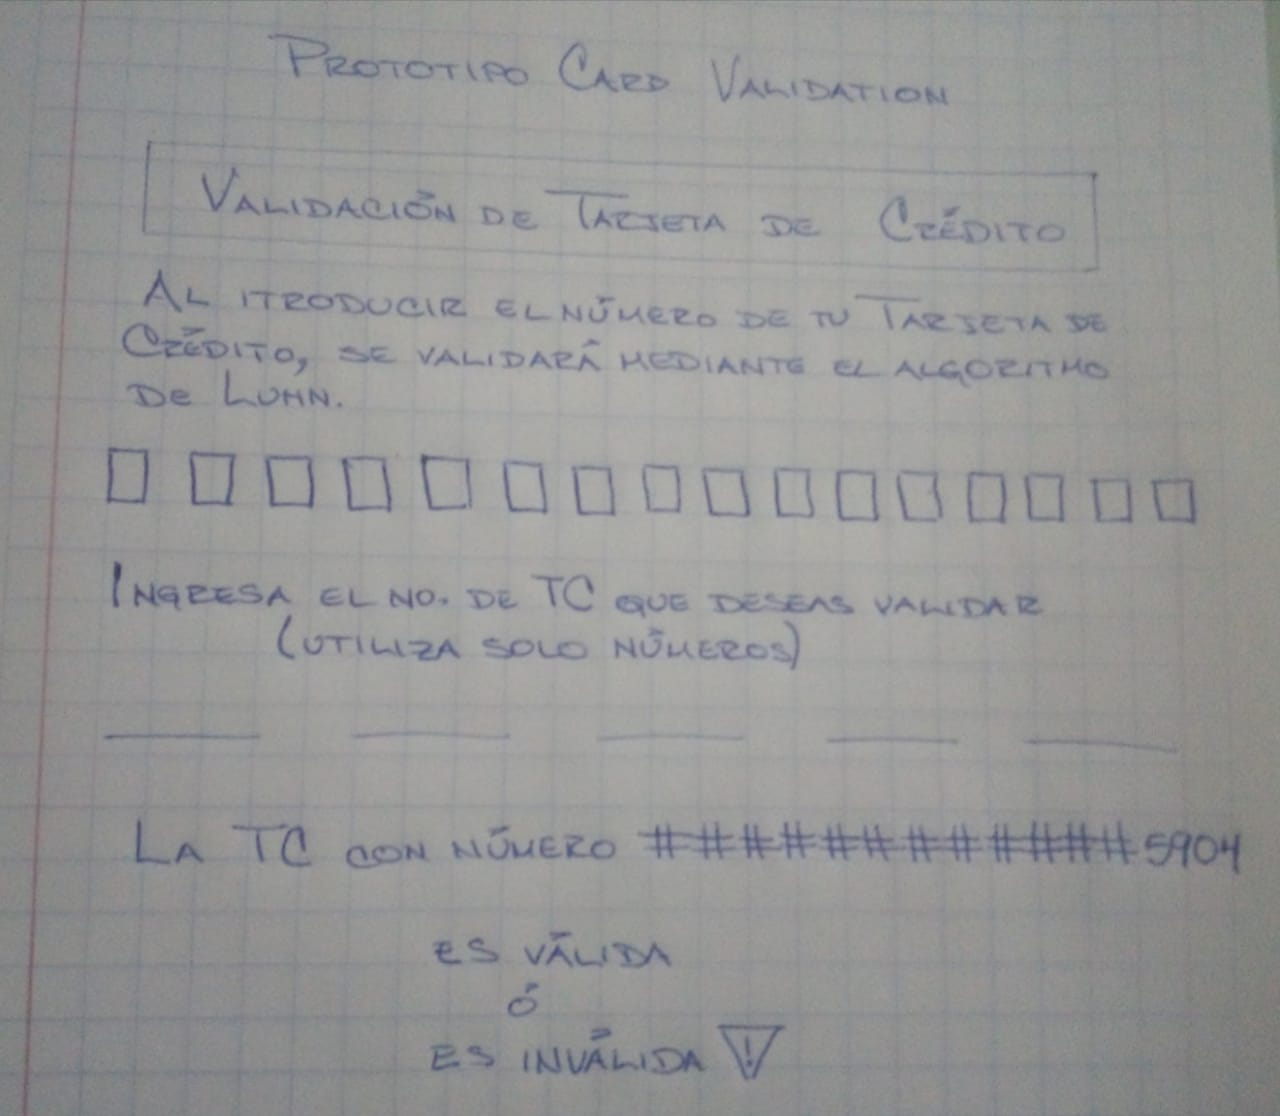 PROTOTIPO CARD VALIDATION
VALIDACIÓN DE TARJETA DE CRÉDITO
AL ITRODUCIR EL NÚMERO DE TU TARJETA DE
CRÉDITO, SE VALIDARÁ MEDIANTE EL ALGORITMO
DE LUHN.
INGRESA EL NO. DE TC QUE DESEAS VALIDAR
(UTILIZA SOLO NÚMEROS)
LA TC CON NÚMERO ############5904
ES VÁLIDA
Ó
ES INVÁLIDA !